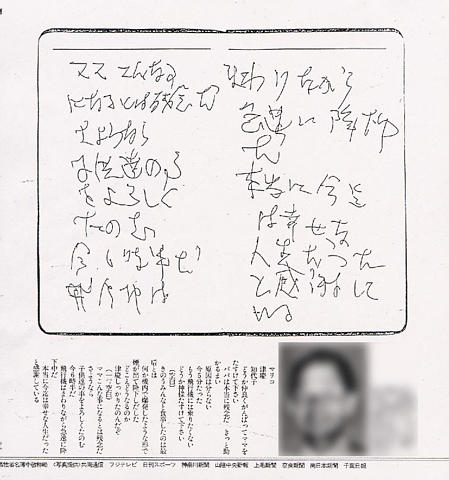 ママ こんな事
になるとは残念だ
さようなら
子供達の事
をよろしく
たのむ
今6時半だ
飛行機は
まわりながら
急速に降下中
だ
本当に今迄
は幸せな
人生だった
と感謝して
いる
マリコ
津慶
知代子
どうか仲良くがんばってママを
たすけて下さい
パパは本当に残念だ きっと助
かるまい
原因は分らない
今5分たった
もう飛行機には乗りたくない
どうか神様たすけて下さい
(空白)
きのうみんなと食事したのは最
后とは
何か機内で爆発したような形で
煙が出て降下しだした
どこえどうなるのか
津慶しっかりたのんだぞ
空白)
ママこんな事になるとは残念だ
さようなら
子供達の事をよろしくたのむ
今6時半だ
飛行機はまわりながら急速に降
下中だ
本当に今迄は幸せな人生だった
と感謝している
(写真提供)共同通信 フジテレビ 日刊スポーツ 神奈川新聞 山陰中央新報 上毛新聞 奈良新聞 南日本新聞 千葉日報